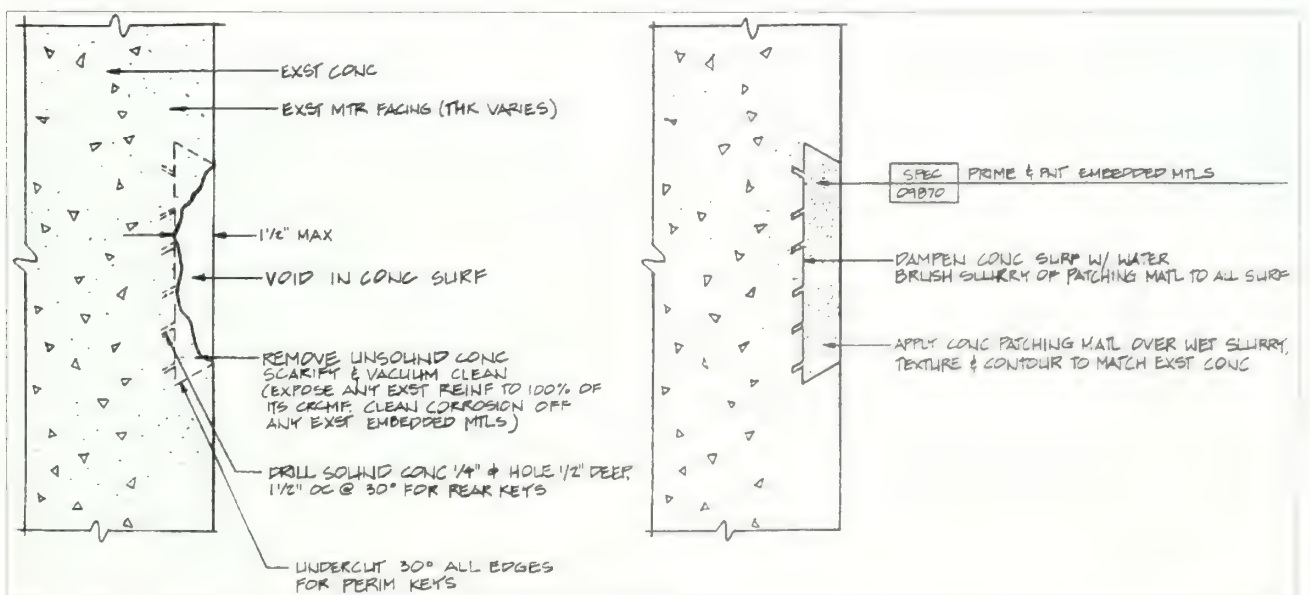 EXST CONC
EXST MTR FACING (THK VARIES)
1 1/2" MAX
VOID IN CONC SURF
REMOVE UNSOUND CONC
SCARIFY & VACUUM CLEAN
(EXPOSE ANY EXST REINF TO 100% OF
ITS CRCMF. CLEAN CORROSION OFF
ANY EXST EMBEDDED MTLS)
DRILL SOUND CONC 1/4" ϕ HOLE 1/2" DEEP,
1 1/2" OC @ 30° FOR REAR KEYS
UNDERCUT 30° ALL EDGES
FOR PERIM KEYS
SPEC
09870
PRIME & PNT EMBEDDED MTLS
DAMPEN CONC SURF W/ WATER
BRUSH SLURRY OF PATCHING MATL TO ALL SURF
APPLY CONC PATCHING MATL OVER WET SLURRY,
TEXTURE & CONTOUR TO MATCH EXST CONC